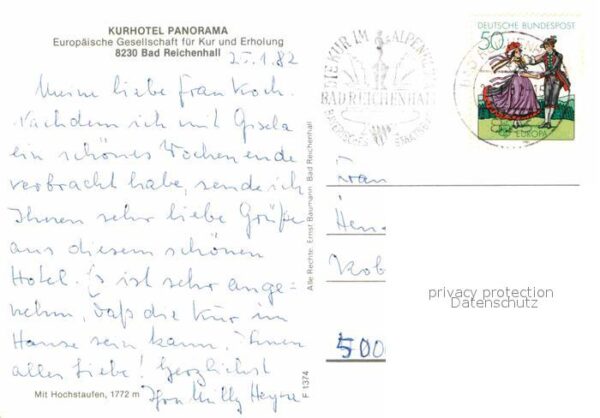 KURHOTEL PANORAMA
Europäische Gesellschaft für Kur und Erholung
8230 Bad Reichenhall
25.1.82
Meine liebe Frau Koch.
Nachdem ich mit Gisela
ein schönes Wochenende
verbracht habe, sende ich
Ihnen sehr liebe Grüße
aus diesem schönen
Hotel. Es ist sehr ange-
nehm, daß die Kur im
Hause sein kann. Ihnen
alles Liebe! Herzlichst
Ihre Milly
Mit Hochstaufen, 1772 m
F 1374
Alle Rechte: Ernst Baumann Bad Reichenhall
DIE KUR IM ALPENKLIMA
BAD REICHENHALL
BAYERISCHES STAATSBAD
DEUTSCHE BUNDESPOST
50
EUROPA
Frau
Hen
Kob
privacy protection
Datenschutz
500